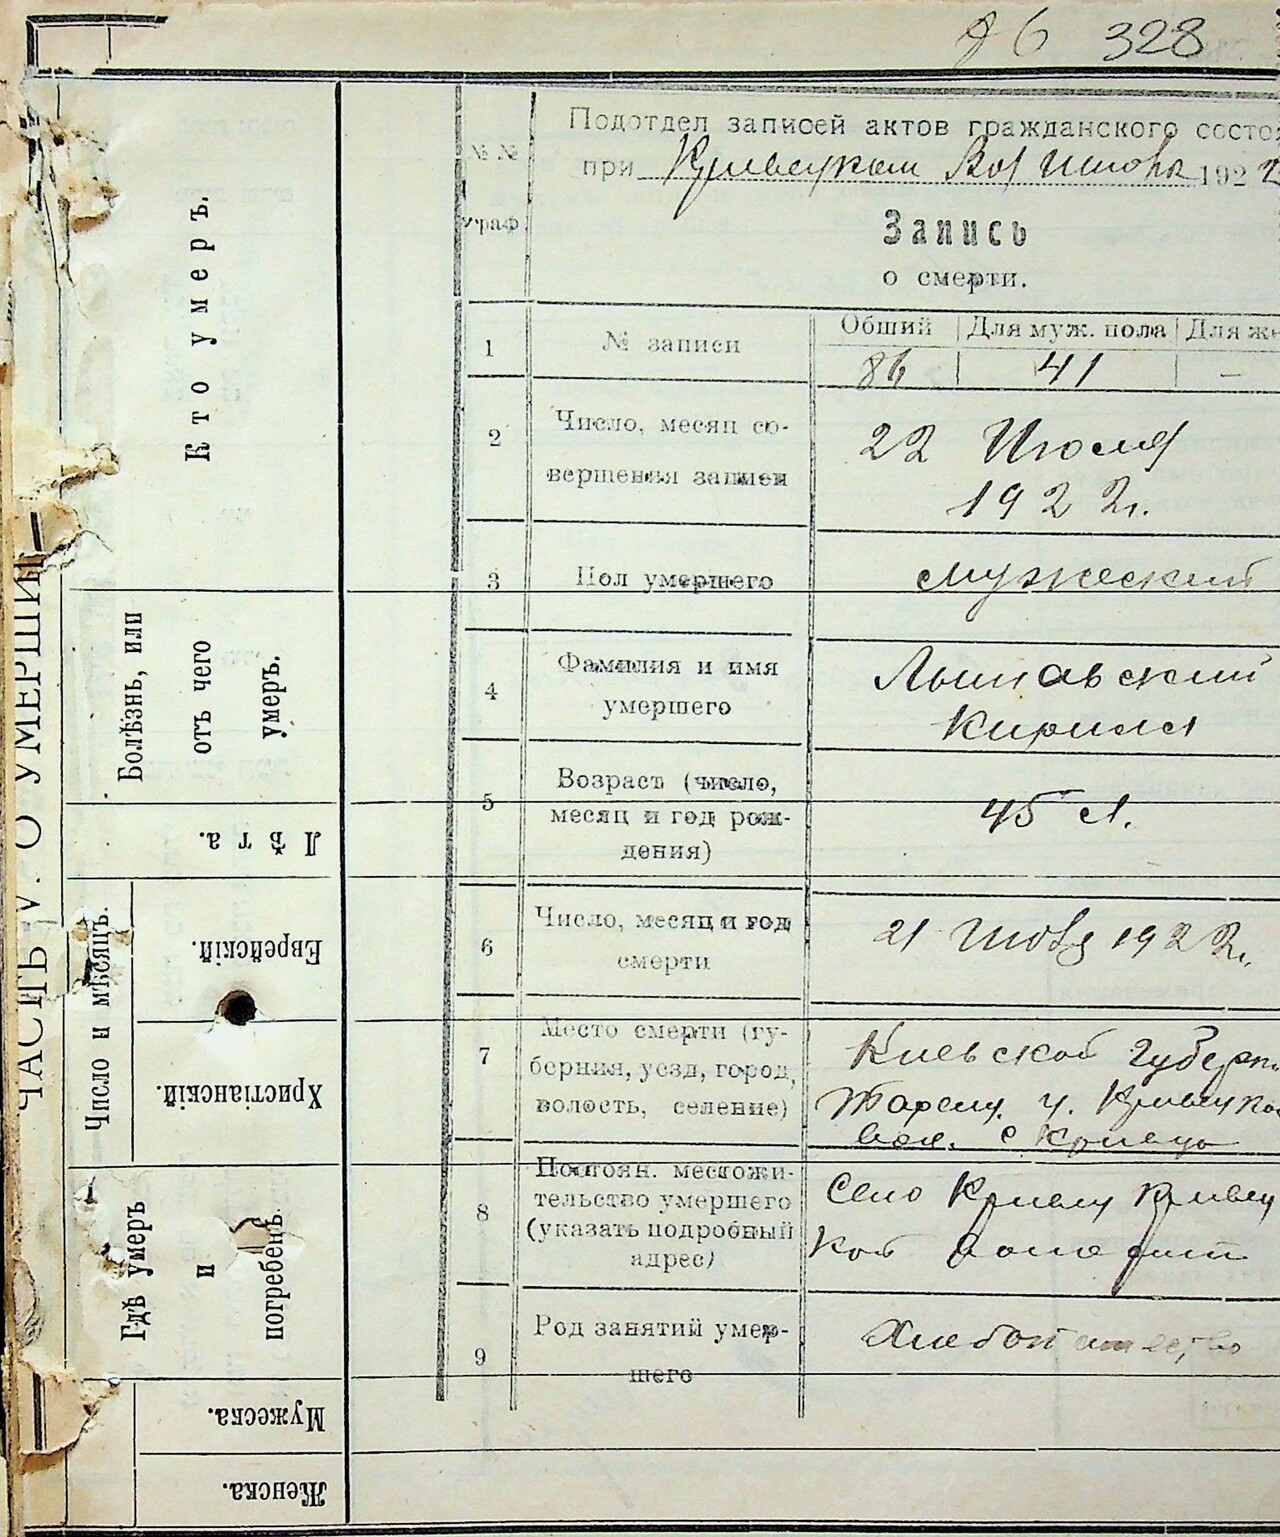 86 328
Подотдел записей актов гражданского состо
при Кривецком Вол Исполк 1922
№ №
граф.
Запись
о смерти.
1 № записи
Общий Для муж. пола Для же
86 41 —
2 Число, месяц со-
вершения записи
22 Июля
1922 г.
3 Пол умершего
мужеский
4 Фамилия и имя
умершего
Кирилл
5 Возраст (число,
месяц и год рож-
дения)
45 л.
6 Число, месяц и год
смерти
21 1922 г.
7 Место смерти (гу-
берния, уезд, город,
волость, селение)
Киевской Губерн
у. Кривецкой
вол. с Кривец
8 Постоян. местожи-
тельство умершего
(указать подробный
адрес)
Село Кривец Кривец
кой
9 Род занятий умер-
шего
Хлебопашество
ЧАСТЬ V. О УМЕРШИ
Кто умеръ.
Болѣзнь, или
отъ чего
умеръ.
Лѣта.
Число и мѣсяцъ.
Еврейскій.
Христіанскій.
Гдѣ умеръ
и
погребенъ.
Мужеска.
Женска.